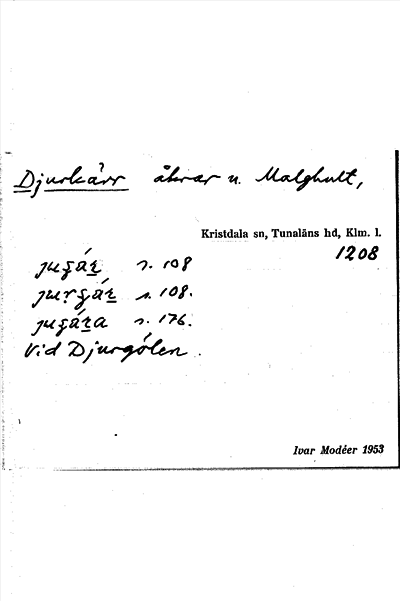 Djurkärr åkrar u. Malghult,
Kristdala sn, Tunaläns hd, Klm. l.
1208
s. 108
s. 108.
s. 176.
Vid Djurgölen.
Ivar Modéer 1953